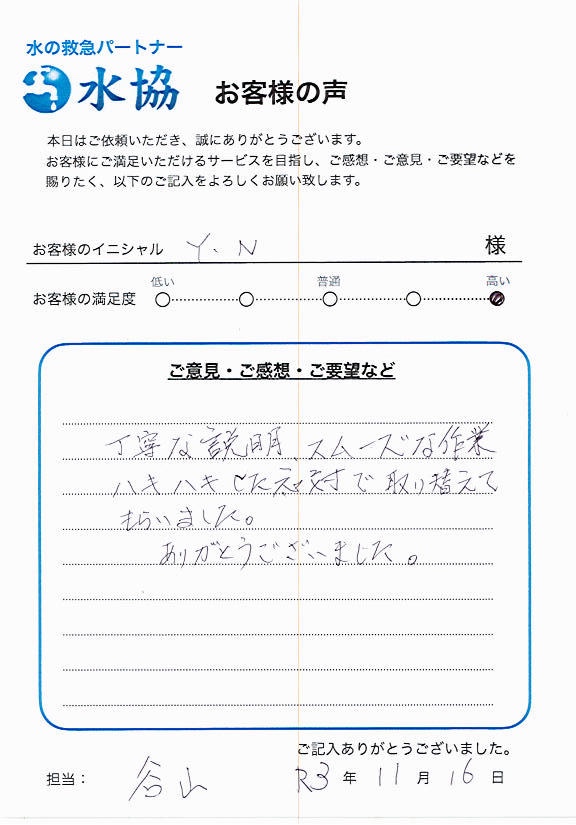 水の救急パートナー
水協 お客様の声
本日はご依頼いただき、誠にありがとうございます。
お客様にご満足いただけるサービスを目指し、ご感想・ご意見・ご要望などを
賜りたく、以下のご記入をよろしくお願い致します。
お客様のイニシャル Y.N 様
低い 普通 高い
お客様の満足度
ご意見・ご感想・ご要望など
丁寧な説明、スムーズな作業
ハキハキした応対で取り替えて
もらいました。
ありがとうございました。
ご記入ありがとうございました。
担当: 谷山 R3年 11月 16日